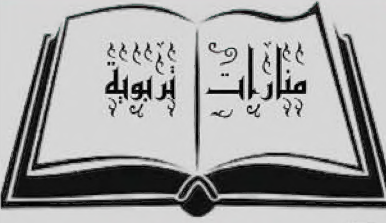 منارات تربوية